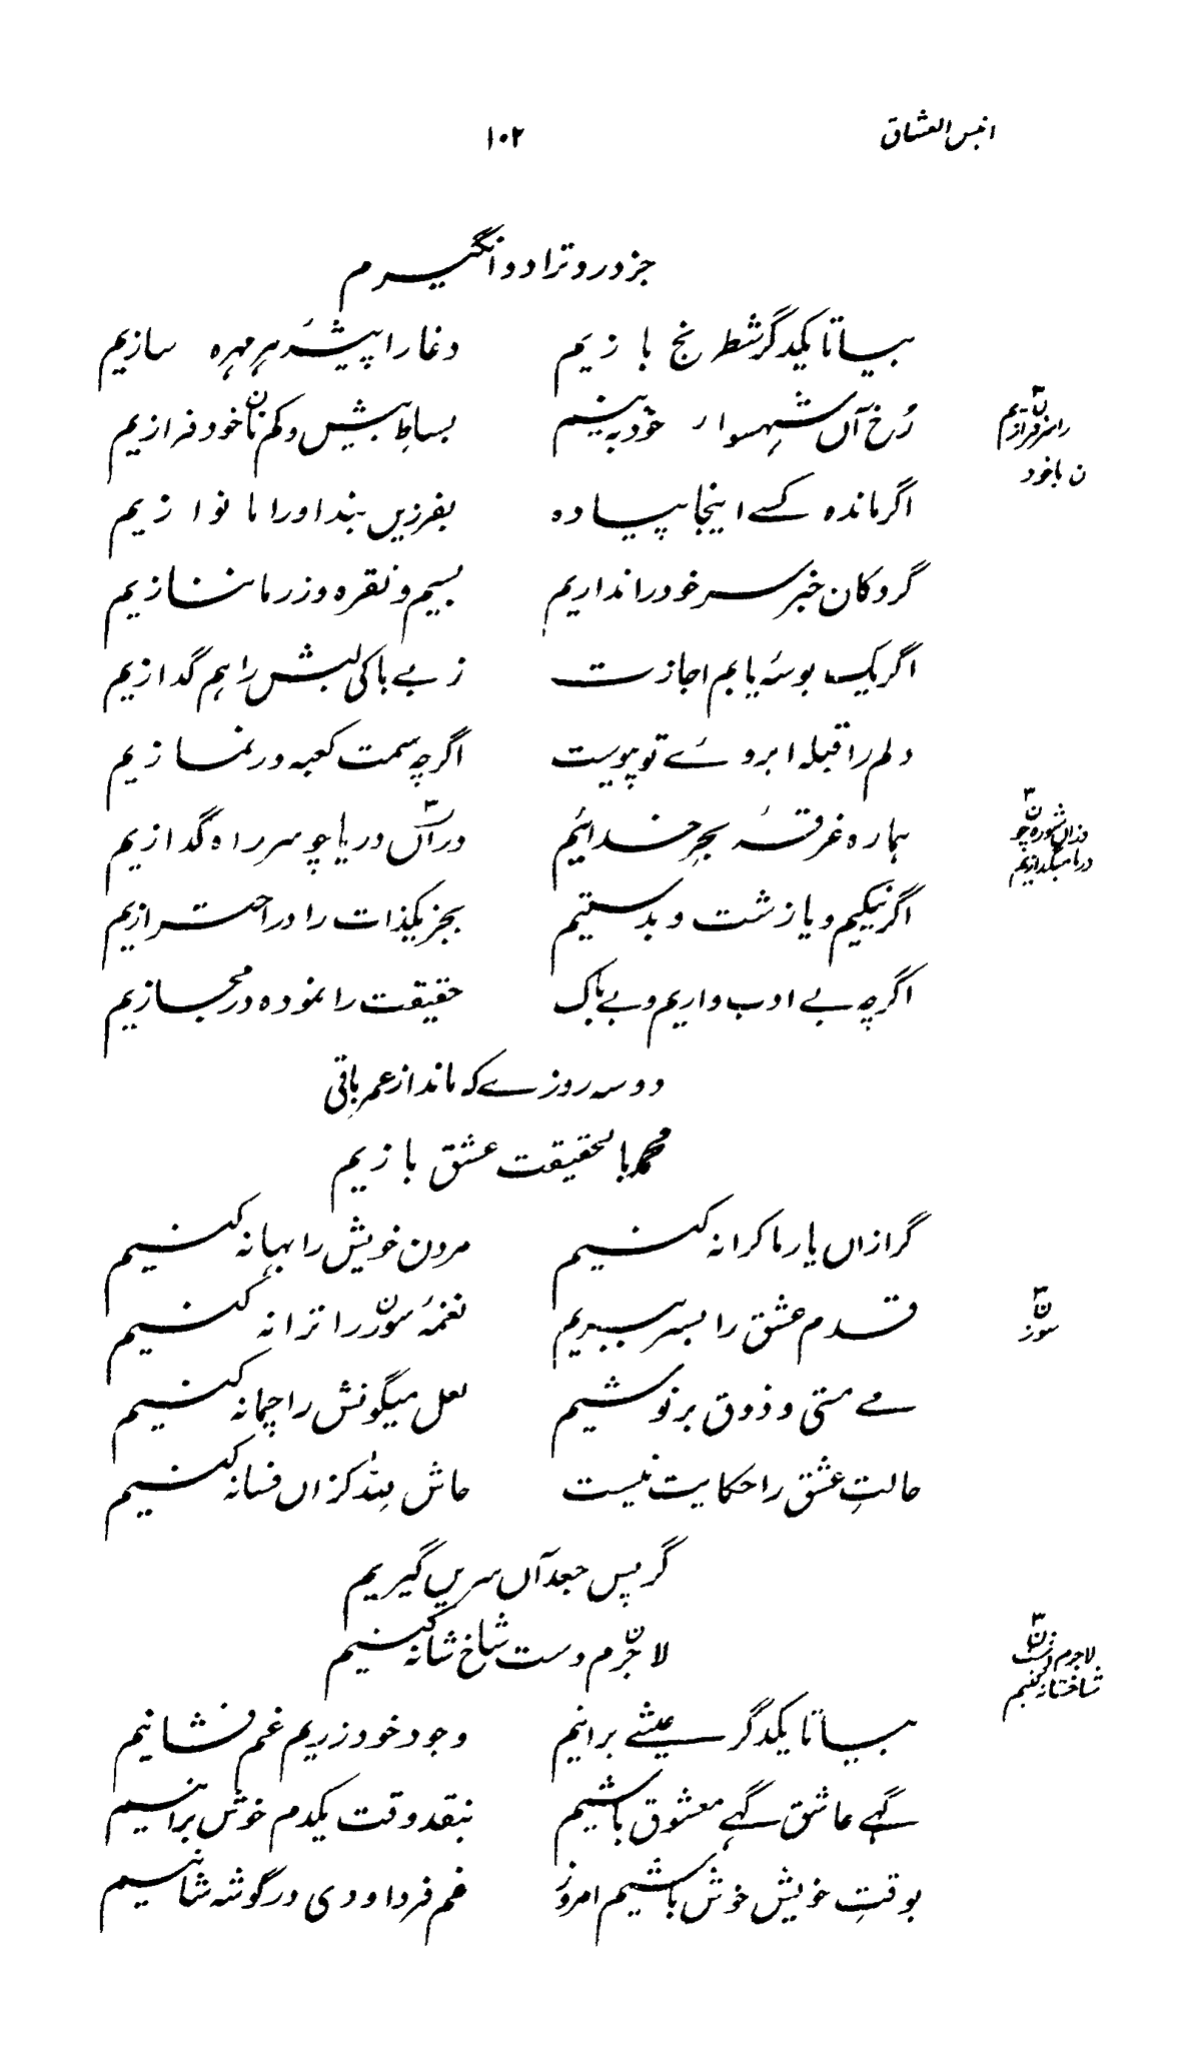 انیس العشاق ۱۰۲
جز درد ترا دوا نگیرم
بیا تا یکدگر شطرنج بازیم دغا را پیشۂ ہر مہرہ سازیم
رُخِ آں شہسوار خود بہ بینیم بساطِ بیش و کم تا خود فرازیم
ن ۳ یم
را سرفرازیم
ن باخود
اگر ماندہ کسے اینجا پیادہ بفرزیں بند او را ما نوازیم
گروکان خبر سر خود را نداریم بسیم و نقرہ و زر ما ننازیم
اگر یک بوسۂ یابم اجازت ز بے باکی لبش را ہم گدازیم
دلم را قبلہ ابروئے تو پیوست اگرچہ سمت کعبہ در نمازیم
ہمارہ غرقۂ بحرِ خدائیم در آں دریا چو سر راہ گدازیم
ن ۳
وزاں شورہ چو
دریا میگدازیم
اگر نیکیم و یا زشت و بدستیم بجز یکذات را در احترازیم
اگرچہ بے ادب واریم و بے باک حقیقت را نمودہ در مجازیم
دو سہ روزے کہ ماند از عمر باقی
محمد بالحقیقت عشق بازیم
گر ازاں یار ما کرانہ کنیم مردن خویش را بہانہ کنیم
قدم عشق را بسر سپریم نغمۂ سوز را ترانہ کنیم
ن ۳
سوز
مے مستی و ذوق بر نوشیم لعل میگونش را چمانہ کنیم
حالتِ عشق را حکایت نیست حاش للہ کزاں فسانہ کنیم
گر پس جعد آں سریں گیریم
لاجرم دست شاخ شانہ کنیم
ن ۳
لاجرم دست
شاختاز کنیم
بیا تا یکدگر عیشے برانیم وجود خود زریم غم فشانیم
گہے عاشق گہے معشوق باشیم نبقد وقت یکدم خوش برانیم
بوقتِ خویش خوش باشیم امروز غم فردا و دی در گوشہ شانیم